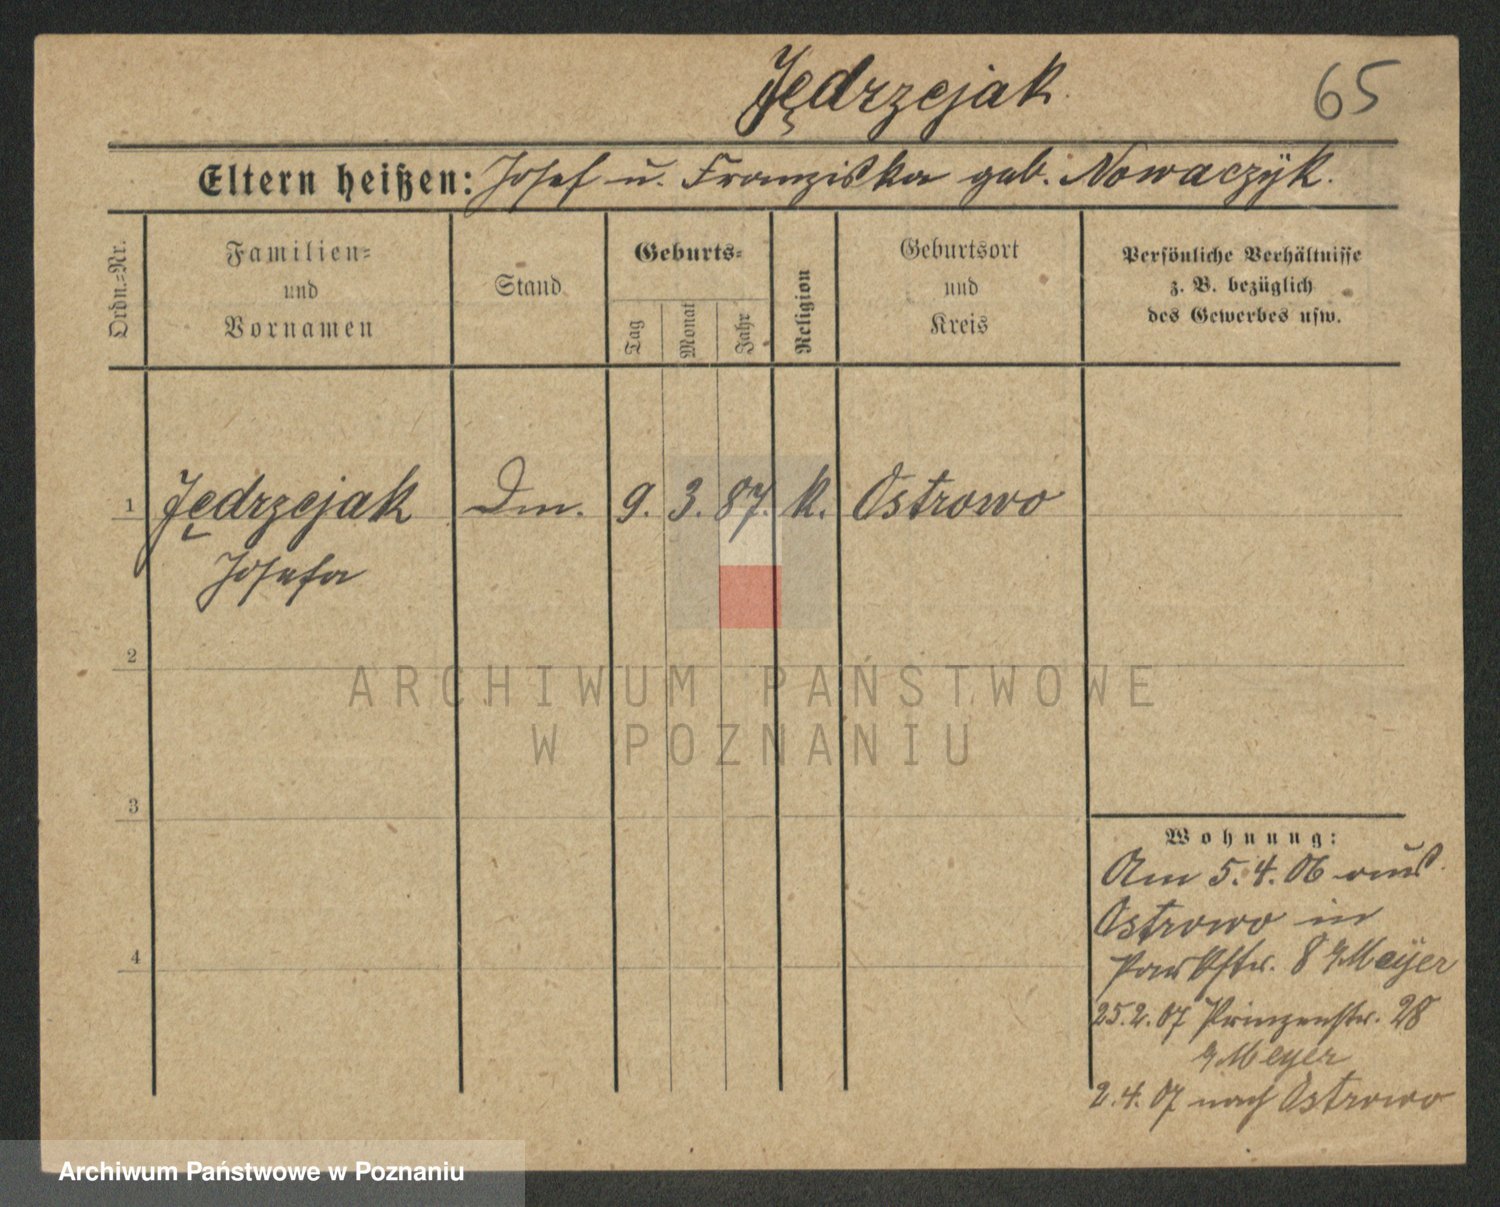 Jędrzejak
65
Eltern heißen: Josef u. Franziska geb. Nowaczÿk.
Ordn.=Nr.
Familien=
und
Vornamen
Stand
Geburts=
Tag
Monat
Jahr
Religion
Geburtsort
und
Kreis
Persönliche Verhältnisse
z. B. bezüglich
des Gewerbes usw.
1 Jędrzejak Dm. 9. 3. 87. k. Ostrowo
Josefa
2
3
4
Wohnung:
Am 5.4.06 aus
Ostrowo in
Parkstr. 8 Meÿer
25.2.07 Prinzenstr. 28
Meyer
2.4.07 nach Ostrowo
ARCHIWUM PAŃSTWOWE
W POZNANIU
Archiwum Państwowe w Poznaniu